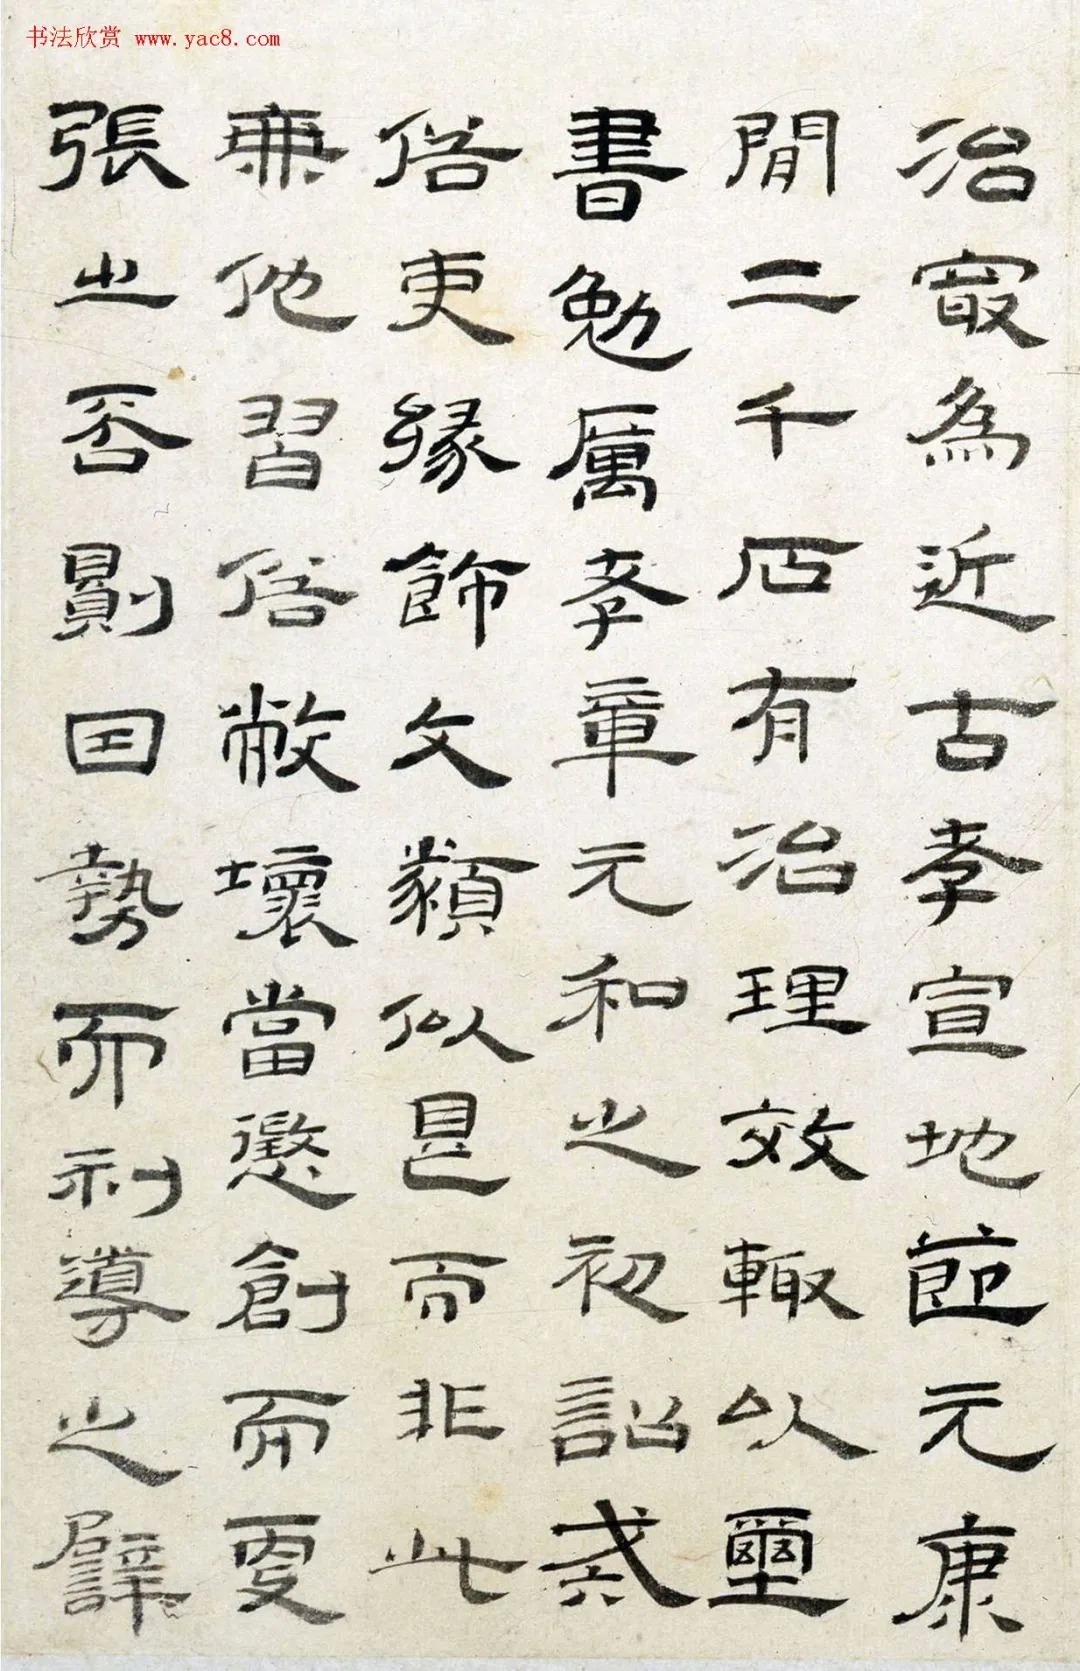 书法欣赏 www.yac8.com
治寂為近古孝宣地節元康
閒二千石有治理效輒以璽
書勉厲孝章元和之初詔戒
俗吏緣飾文類似是而非此
兼他習俗敝壞當懲創而更
張之否則因勢而利導之譬